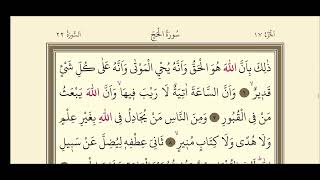 الجزء ١٧ سورة الحج السورة ٢٢
ذٰلِكَ بِاَنَّ اللّٰهَ هُوَ الْحَقُّ وَاَنَّهُ يُحْيِ الْمَوْتٰى وَاَنَّهُ عَلٰى كُلِّ شَيْءٍ
قَدٖيرٌ ﴿٦﴾ وَاَنَّ السَّاعَةَ اٰتِيَةٌ لَا رَيْبَ فٖيهَا وَاَنَّ اللّٰهَ يَبْعَثُ
مَنْ فِى الْقُبُورِ ﴿٧﴾ وَمِنَ النَّاسِ مَنْ يُجَادِلُ فِى اللّٰهِ بِغَيْرِ عِلْمٍ
وَلَا هُدًى وَلَا كِتَابٍ مُنٖيرٍ ﴿٨﴾ ثَانِىَ عِطْفِهٖ لِيُضِلَّ عَنْ سَبٖيلِ